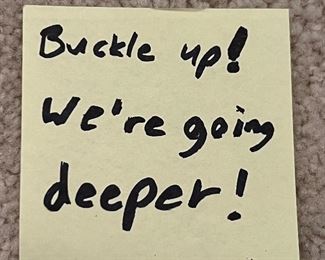 Buckle up!
We're going
deeper!